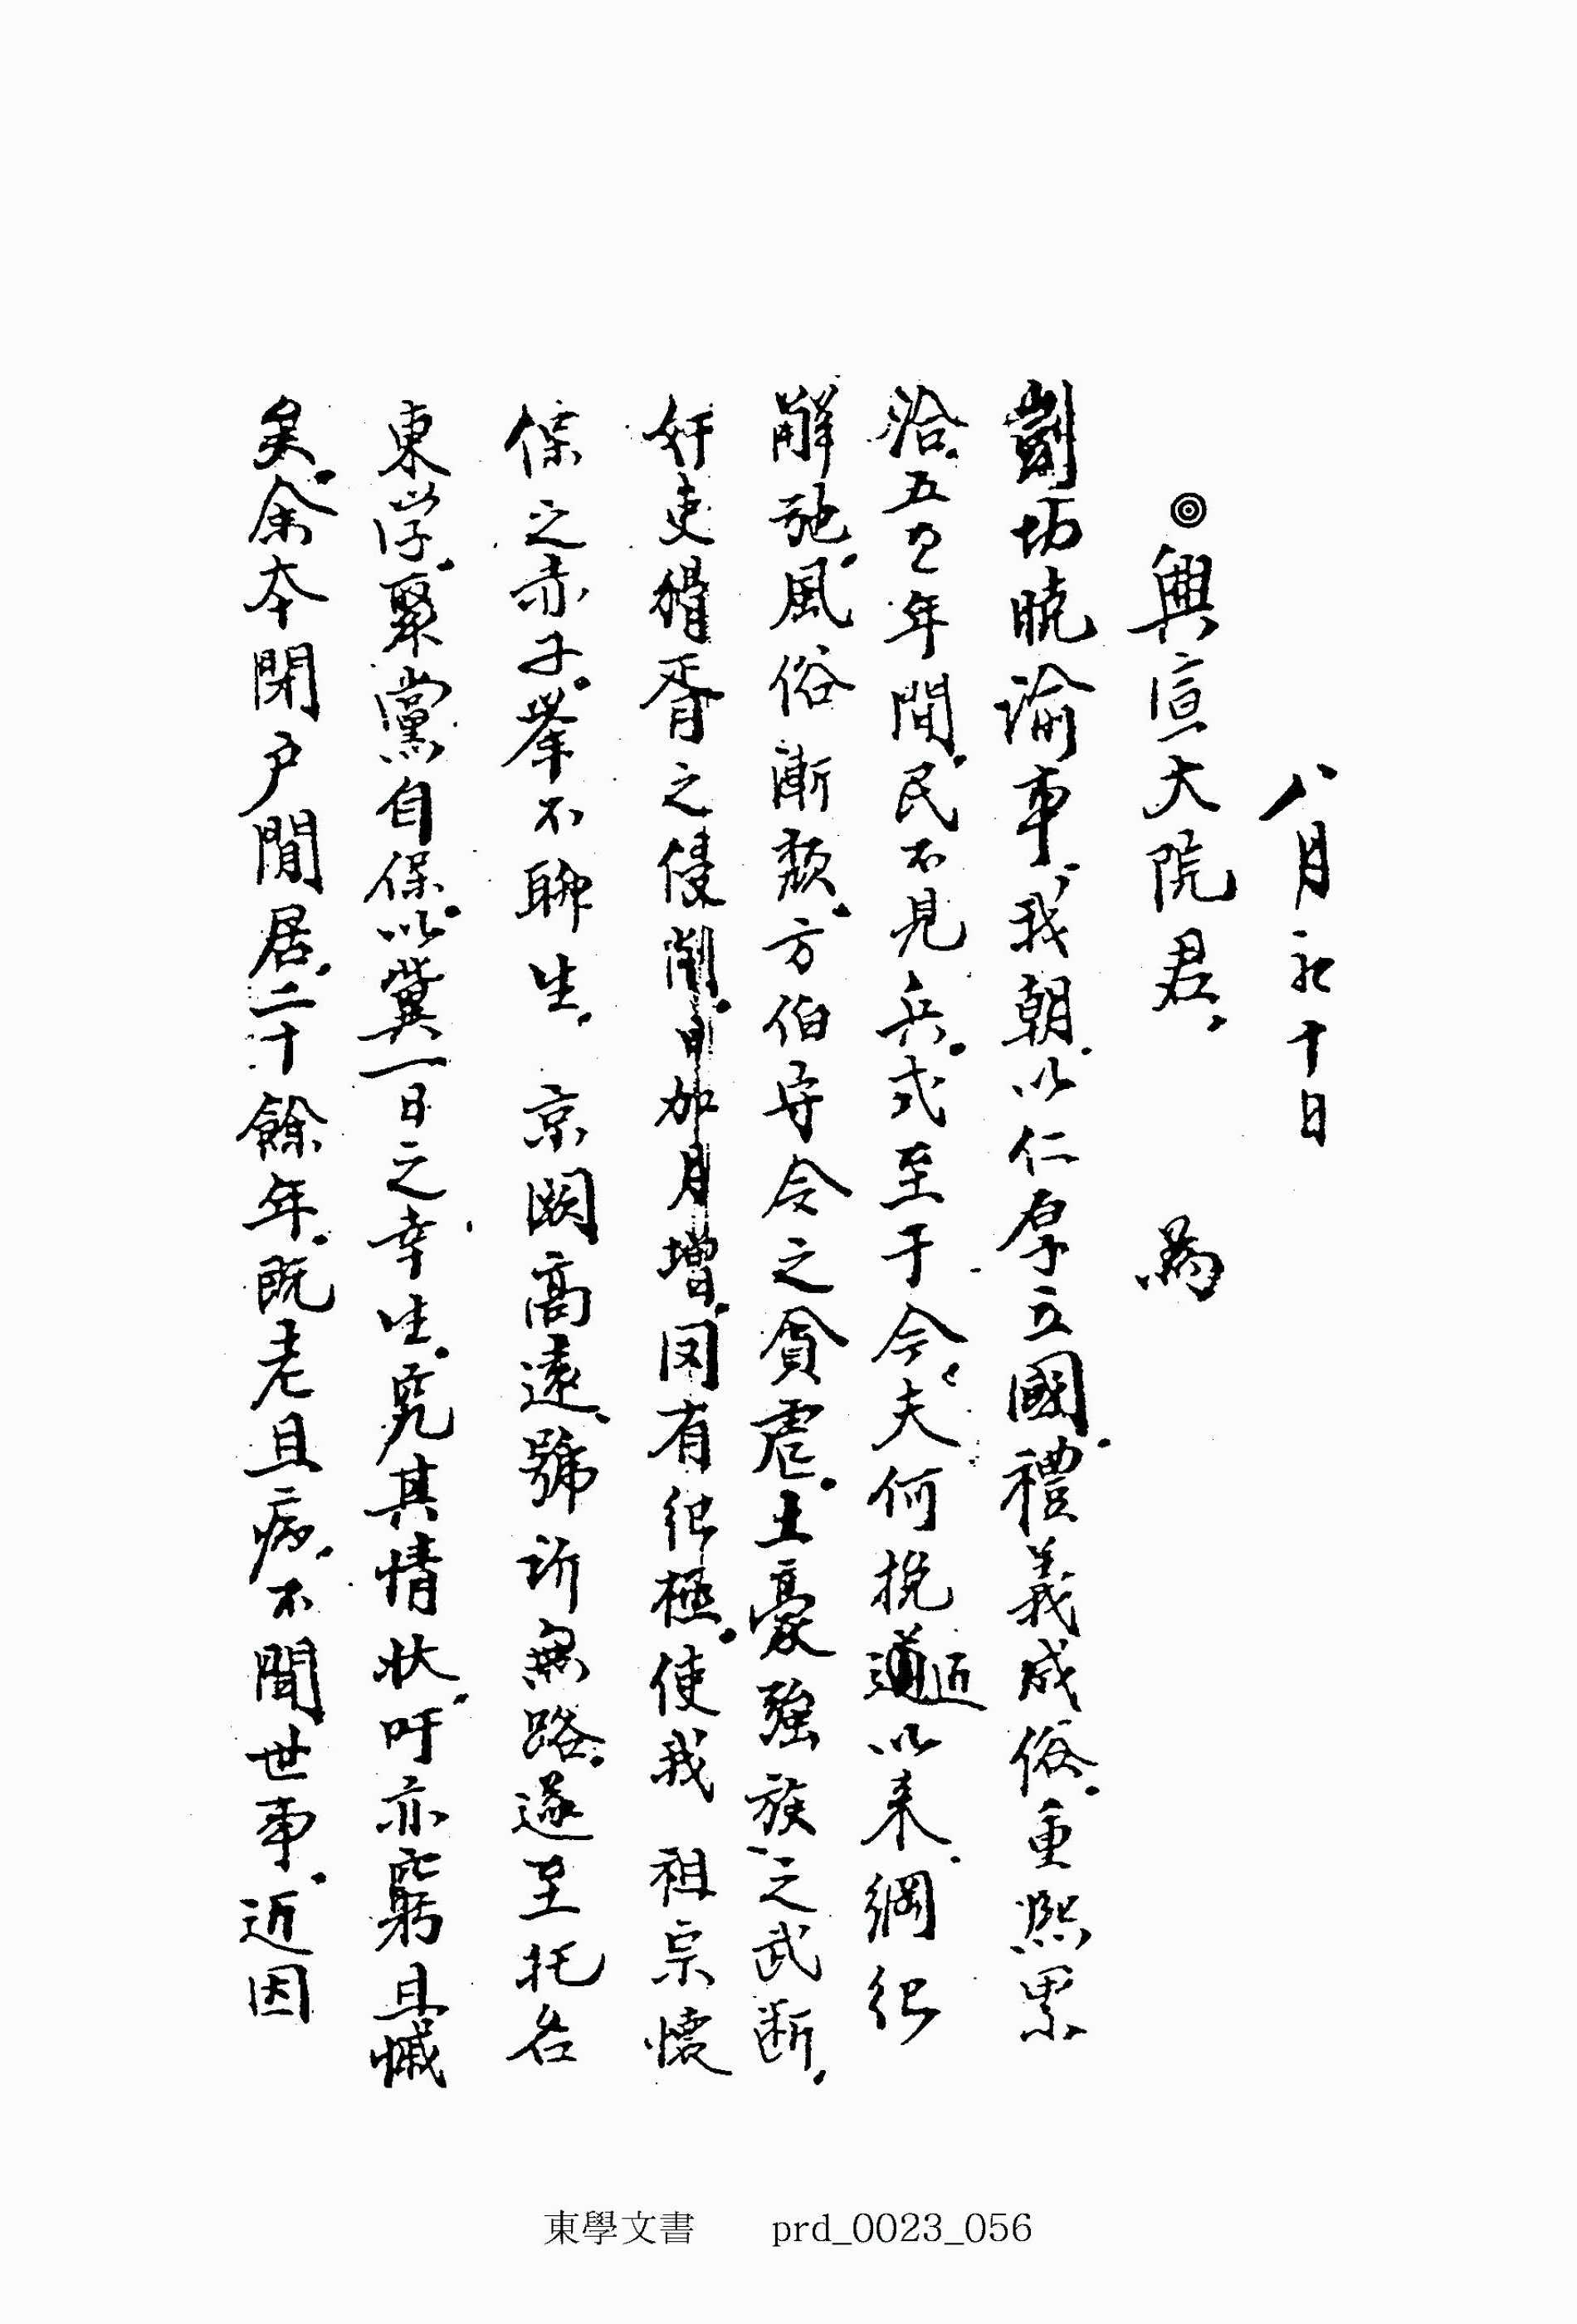 八月初十日
◎興宣大院君, 爲
剴切曉諭事, 我朝以仁厚立國, 禮義成俗, 重熙累
洽, 五百年間, 民不見兵, 式至于今, 夫何挽近以来, 綱紀
解弛, 風俗漸頹, 方伯守令之貪虐, 土豪强族之武断,
奸吏猾胥之侵削, 日加月增, 罔有紀極, 使我 祖宗懷
保之赤子, 擧不聊生, 京闕高遠, 號訴無路, 遂至托名
東学, 聚黨自保, 以冀一日之幸生, 究其情状, 吁亦窮且慽
矣, 余本閉户閒居, 二十餘年, 既老且病, 不聞世事, 近因
東學文書 prd_0023_056